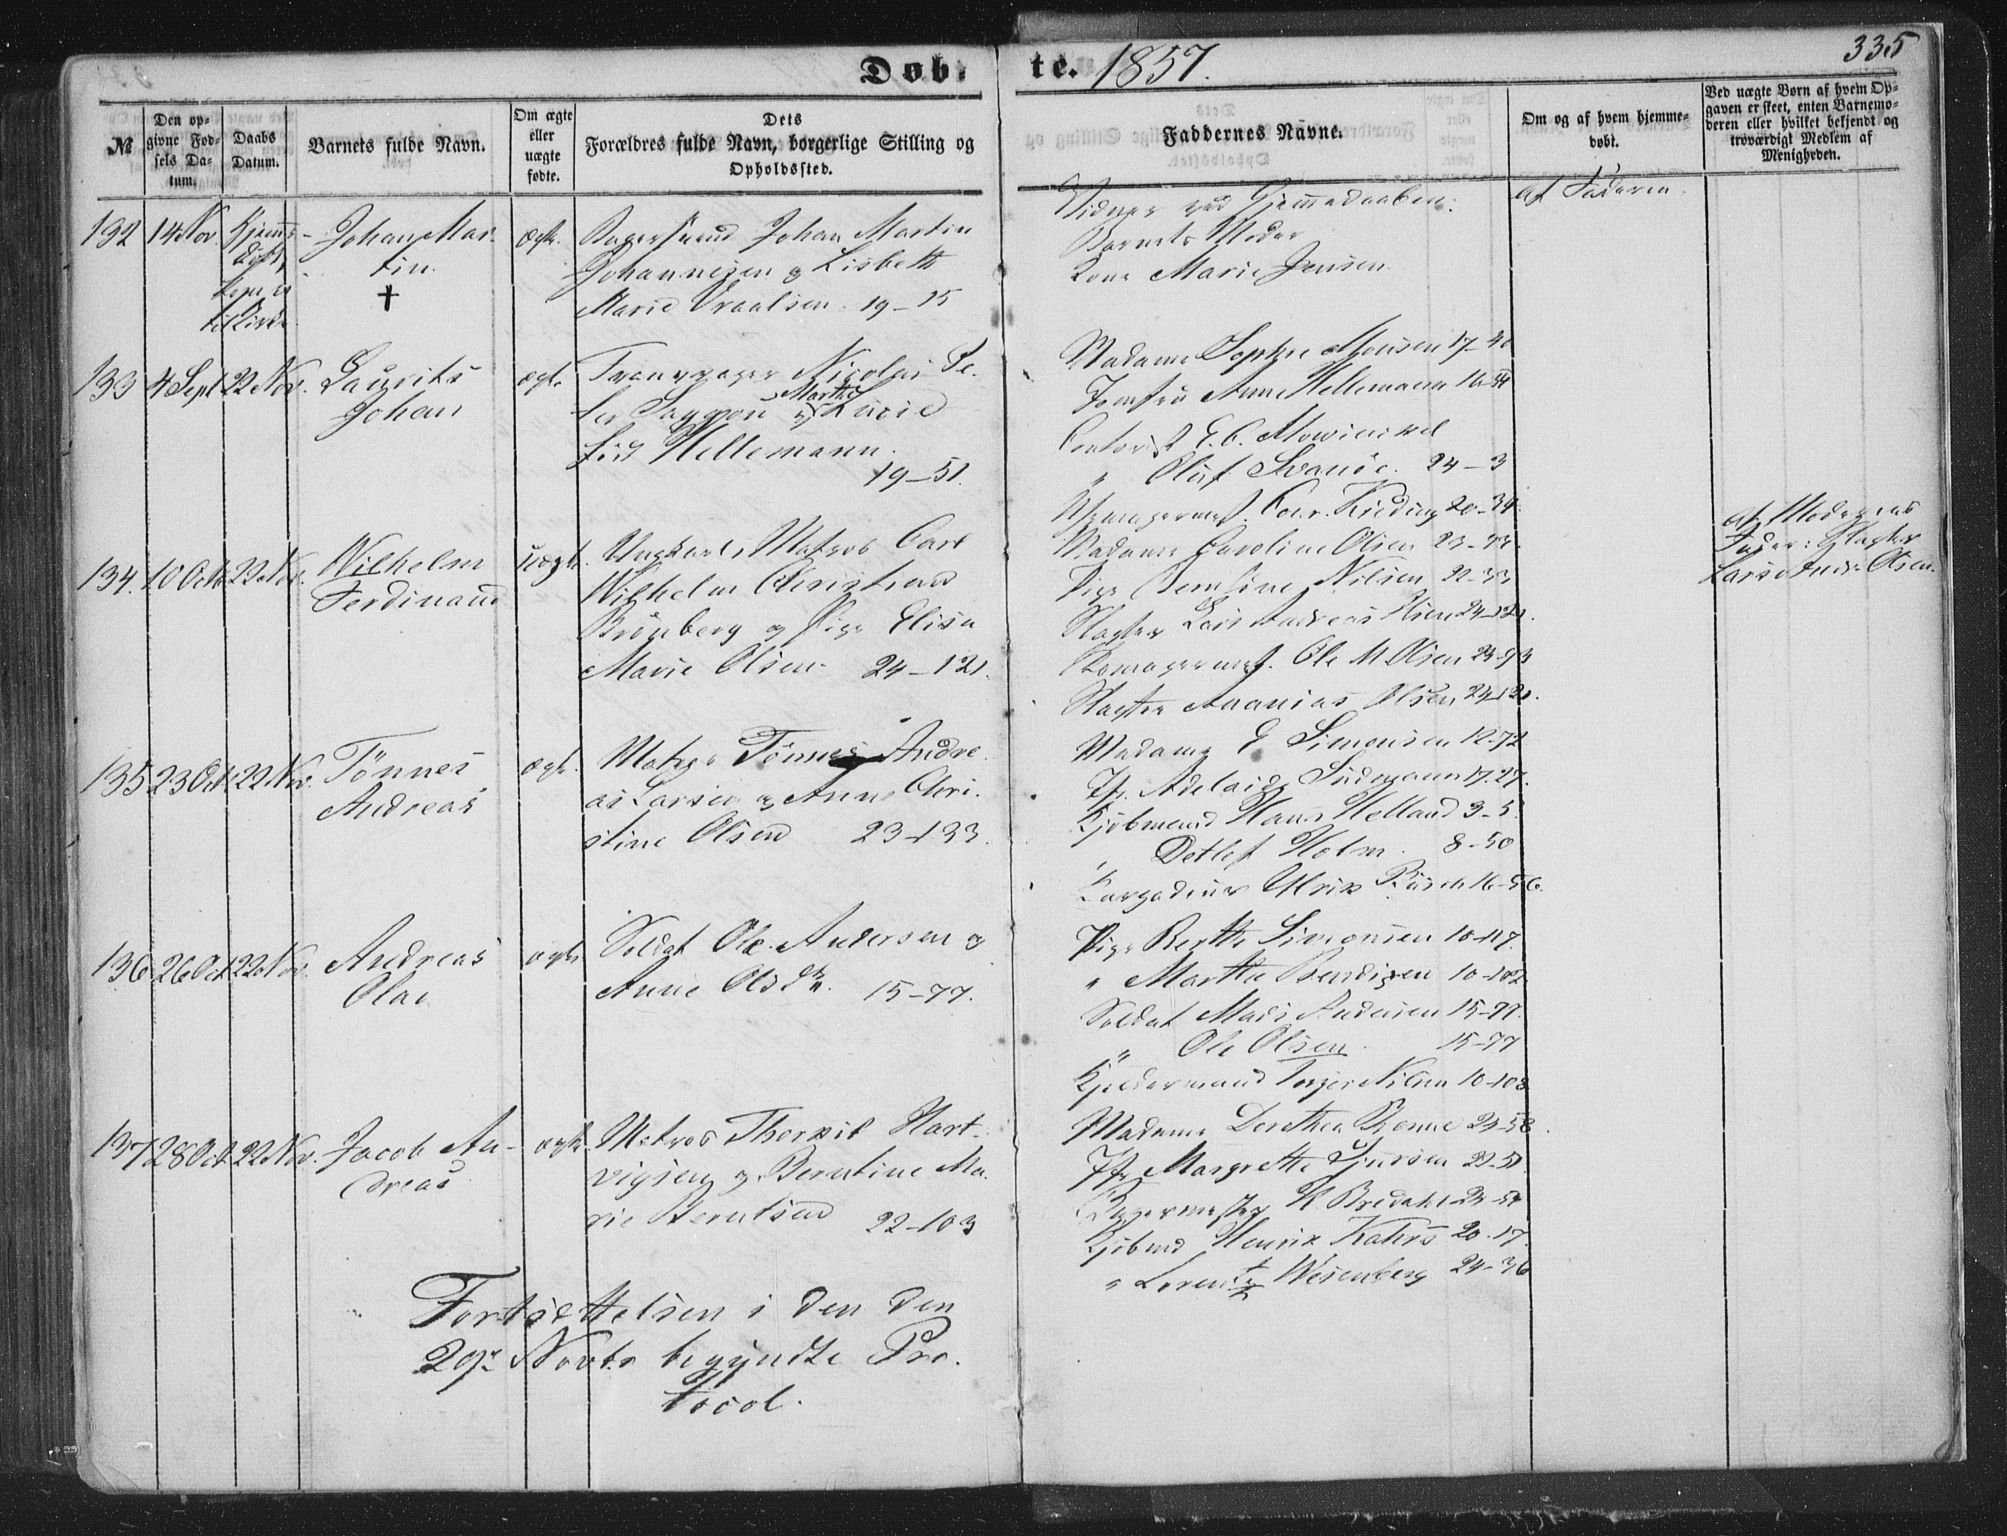 Døb-
te. 1857.
335
№
Den op-
givne Fød-
sels Da-
tum.
Daabs
Datum.
Barnets fulde Navn.
Om ægte
eller
uægte
fødte.
Dets
Forældres fulde Navn, borgerlige Stilling og
Opholdssted.
Faddernes Navne.
Om og af hvem hjemme-
døbt.
Ved uægte Børn af hvem Op-
gaven er skeet, enten Barnemo-
deren eller hvilket bekjendt og
troværdigt Medlem af
Menigheden.
132 14 Nov. Hjemme-
døbt,
Johan Mar-
tin.
†
ægte. Bagersvend Johan Martin
Johannesen & Lisbeth
Marie Vraalsen. 19-25
Vidner ved Hjemmedaaben:
Barnets Moder
Kone Marie Jensen.
af Faderen.
133 4 Sept 22 Nov. Laurits
Johan
ægte Nicolai Pe-
ter & Marthe Lucie
Hellemann.
19-51.
Madame Sophie Monsen 17-40
Jomfru Anne Hellemann 16-
Contorist E. C. Mowinckel
" Oluf Svanöe. 24-3
134. 10 Octb 22 Nov. Wilhelm
Ferdinand
uægte. Ungkarl, Matros Carl
Wilhelm Christian
Brünberg & Pige Elisa
Marie Olsen. 24-121.
Madame Caroline Olsen 23-93.
Pige Nilsen 22-33
Slagter Lars Andreas Olsen 24-121.
Skomagermest. Ole M. Olsen 23-93
Slagter Ananias Olsen 24-121.
af Moderens
Fader: Slagter
Lars Andr: Olsen.
135 23 Oct 22 Nov. Tönnes
Andreas
ægte. Matros Tönnes Andre-
as Larsen & Anne Chri-
stine Olsen 23-133.
Madame E Simonsen 12-72
Jfr. Adelaide Sudmann 17-27.
Kjöbmand Hans Helland 3-5
" Detlef Holm. 8-50
Kargadeur Ulrik Büsch 16-56.
136 26 Oct 22 Nov. Andreas
Olai
ægte Soldat Ole Andersen &
Anne Olsdtr. 15-77.
Pige Berthe Simonsen 10-117.
" Marthe Bendixen 10-102
Soldat Mads Andersen 15-77.
" Ole Olsen. 15-77
Kjeldermand Torger Nilsen 10-108
137 28 Oct 22 Nov. Jacob An-
dreas
ægte. Matros Thorkil Hart-
vigsen & Berntine Ma-
rie Berntsen 22-103
Madame Dorthea Rönne 23-58.
Jfr Margrethe Sjursen 22-51.
Bagermester H. Bredahl 23-58
Kjöbmd Henrik Kahrs 20-17.
" Lorentz Wesenberg 24-36
Fortsættelsen i den den
29de Novbr begyndte Pro-
tocol.